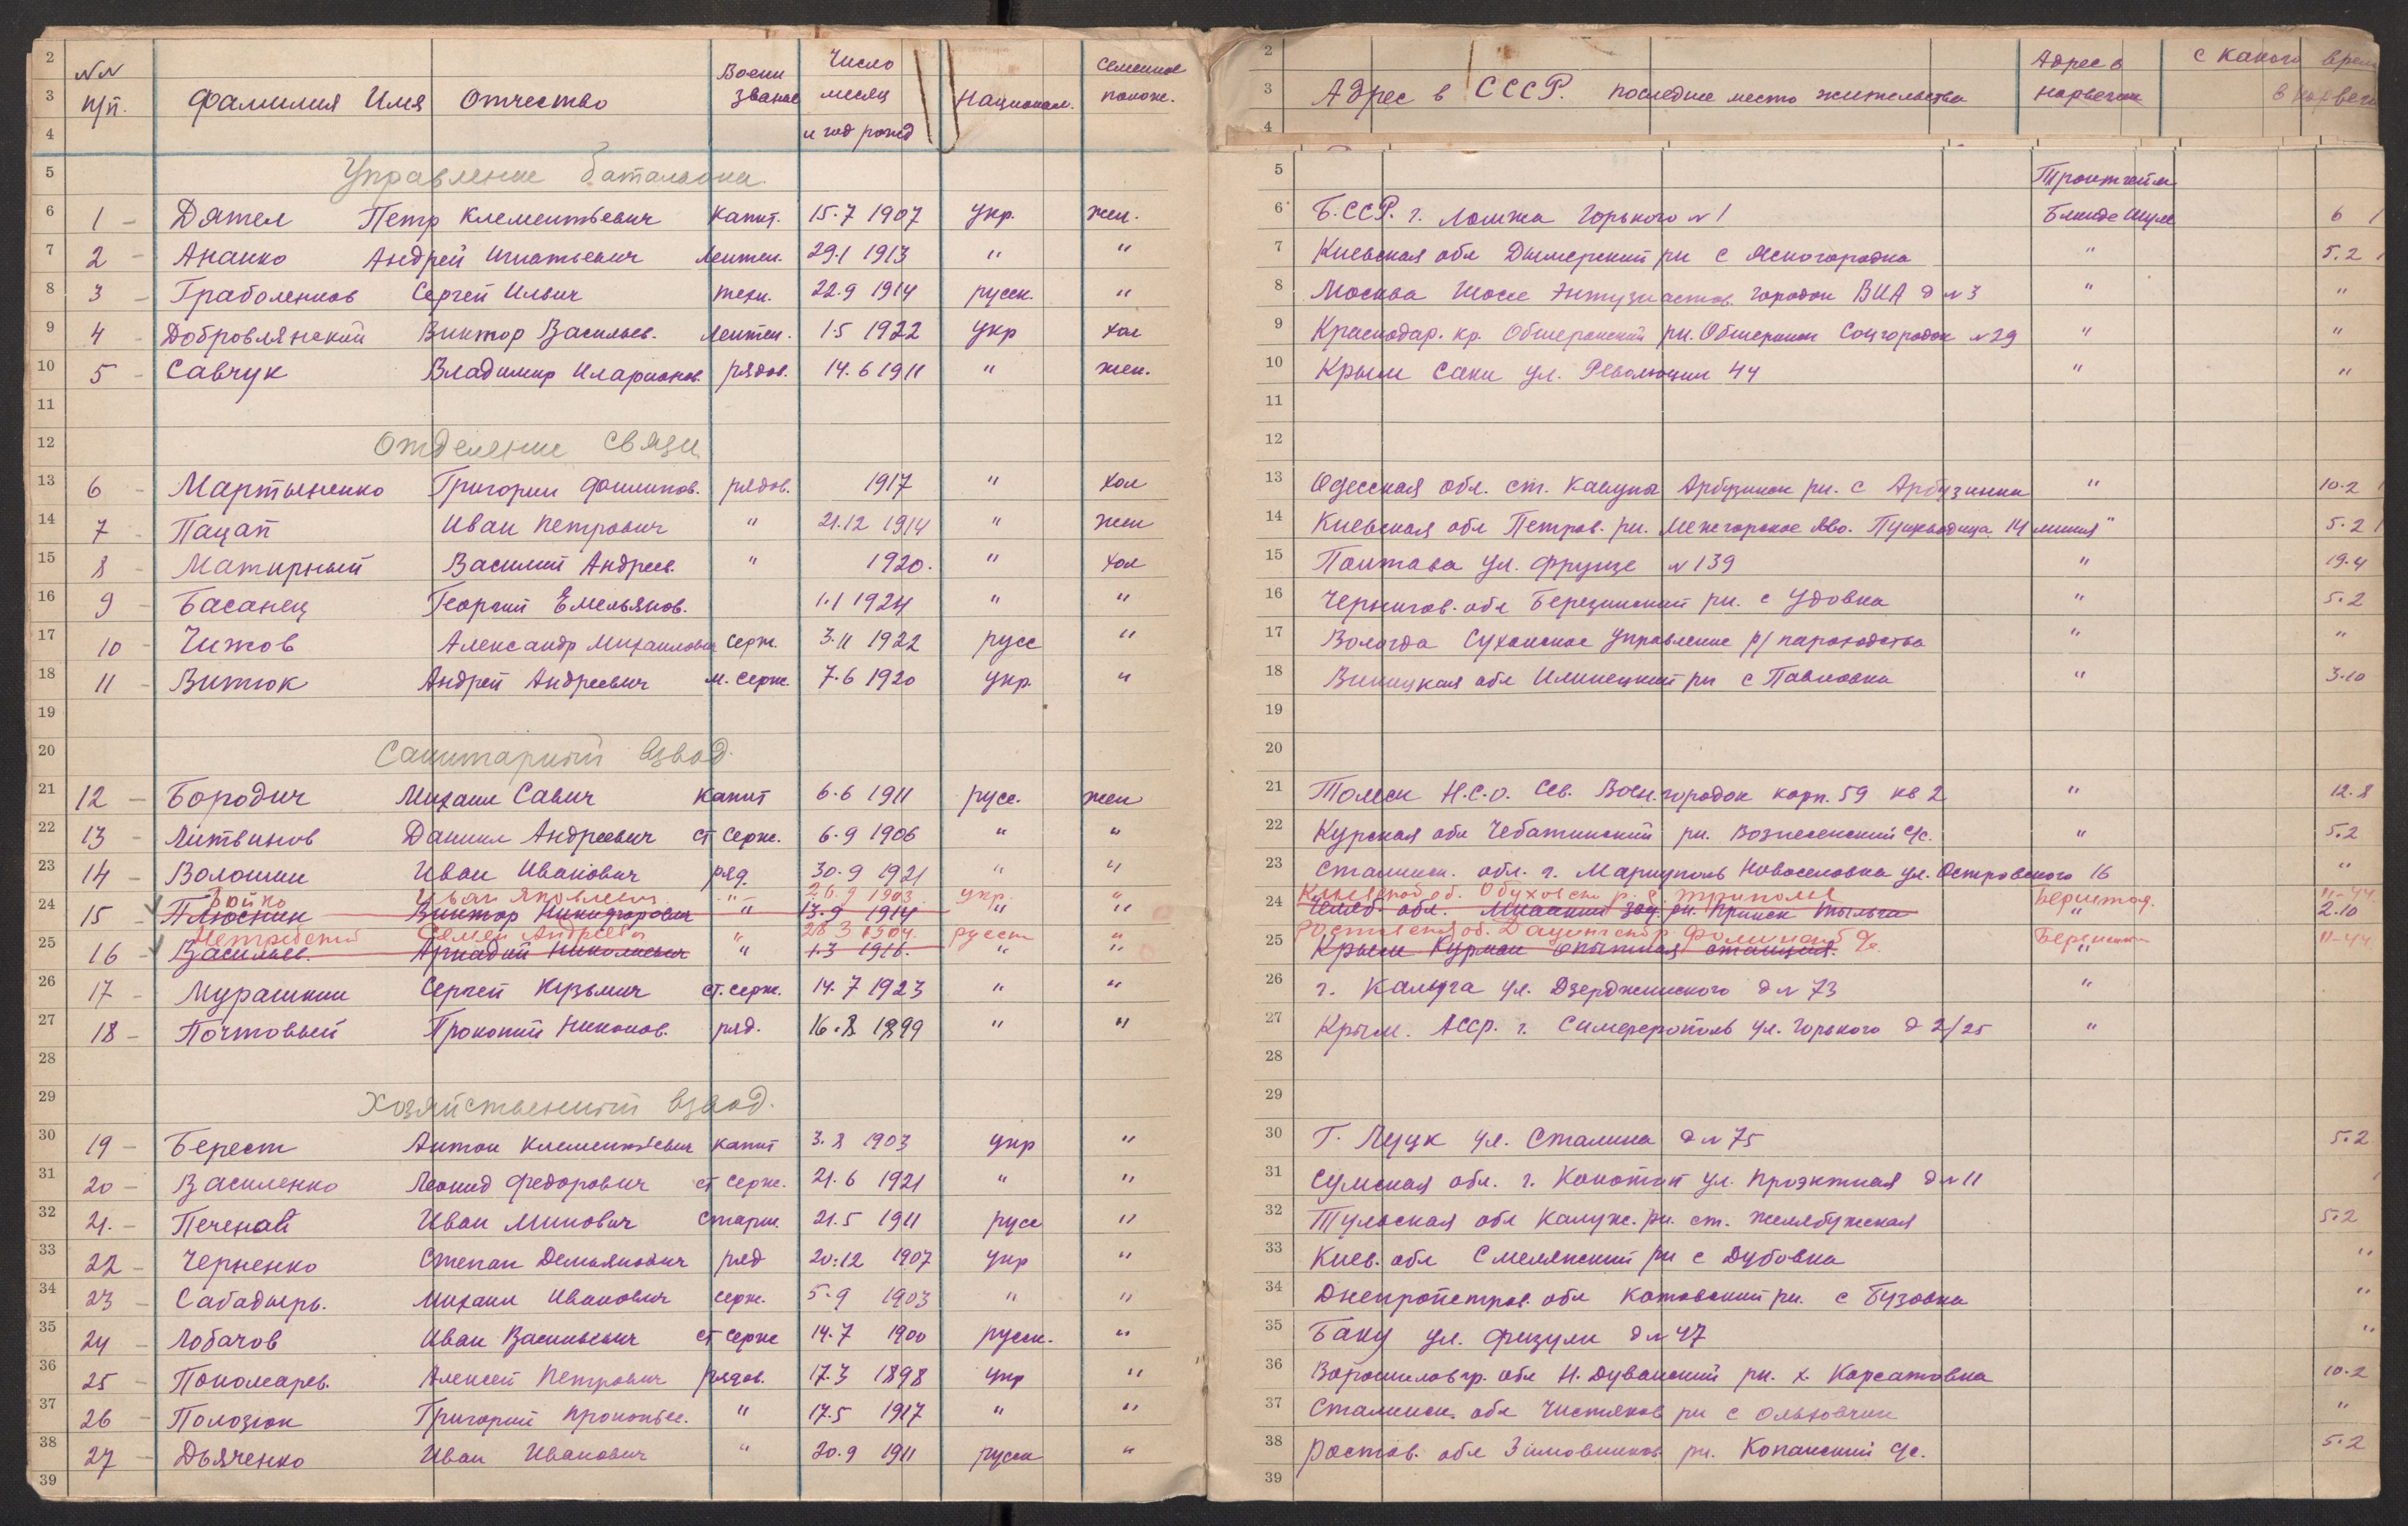 2 NN Воени Число Семейное
3 п/п. Фамилия Имя Отчество звание месяц Национал. полож.
4 и год рожд
5 Управление батальона
6 1 - Дятел Петр Клементьевич капит. 15.7 1907 укр. жен.
7 2 - Ананко Андрей Игнатьевич лейтен. 29.1 1913 " "
8 3 - Граболенков Сергей Ильич техн. 22.9 1914 русск. "
9 4 - Добровлянский Виктор Васильев. лейтен. 1.5 1922 укр хол
10 5 - Савчук Владимир Иларионов. рядов. 14.6 1911 " жен.
11
12 Отделение связи
13 6 - Мартыненко Григории Филипов. рядов. 1917 " хол
14 7 - Пацап Иван Петрович " 21.12 1914 " жен
15 8 - Матирный Василий Андреев. " 1920. " хол
16 9 - Басанец Георгий Емельянов. 1.1 1924 " "
17 10 - Чижов Александр Михаилович серж. 3.11 1922 русс "
18 11 - Витюк Андрей Андреевич м. серж. 7.6 1920 укр. "
19
20 Санитарный взвод.
21 12 - Бородич Михаил Савич капит 6.6 1911 русс. жен
22 13 - Литвинов Даниил Андреевич ст серж. 6.9 1906 " "
23 14 - Волошин Иван Иванович ряд. 30.9 1921 " "
Бойко Иван Яковлевич " 26.9 1903 укр. "
24 15 - Плюснин Виктор Никифорович " 13.9 1914 " "
Семен Андреевич " 28 3 1904. русск "
25 16 - Васильев. Аркадий Николаевич " 1.3 1916. " "
26 17 - Мурашкин Сергей Кузьмич ст. серж. 14.7 1923 " "
27 18 - Почтовый Прокопий Никонов. ряд. 16.8 1899 " "
28
29 Хозяйственный взвод.
30 19 - Берест Антон Клементьевич капит 3.8 1903 укр "
31 20 - Василенко Леонид Федорович ст серж. 21.6 1921 " "
32 21. - Печенай Иван Минович старш. 21.5 1911 русс "
33 22 - Черненко Степан Демьянович ряд 20.12 1907 укр "
34 23 - Сабадырь. Михаил Иванович серж. 5.9 1903 " "
35 24 - Лобачов Иван Васильевич ст серж 14.7 1900 русск. "
36 25 - Пономарев. Алексей Петрович рядов. 17.3 1898 укр "
37 26 - Полозюк Григорий Прокопьев. " 17.5 1917 " "
38 27 - Дьяченко Иван Иванович " 20.9 1911 русск "
39
2 Адрес в с какого врем
3 Адрес в СССР. последнее место жительства норвегии в норвеги
4
5 Тронтгейм
6 Б.ССР. г. Ломжа Горького N 1 Блинде Шуле 6 1
7 Киевская обл Дымерский рн с Ясногородка " 5.2 1
8 Москва шоссе Энтузиастов. городок ВИА д N 3 " "
9 Краснодар. кр. Обшеронский рн. Обшеронск Соцгородок N 29 " "
10 Крым Саки ул. Революции 44 " "
11
12
13 Одесская обл. ст. Кавуны Арбузинск рн. с Арбузинка " 10.2 1
14 Киевская обл Петров. рн. Межгорское 14 линия " 5.2 1
15 Полтава ул. Фрунзе N 139 " 19.4
16 Чернигов. обл Березинский рн. с Удовка " 5.2
17 Вологда Сухонское Управление р/пароходства " "
18 Виницкая обл Илинецкий рн с Павловка " 3.10
19
20
21 Томск Н.С.О. Сев. Воен.городок корп. 59 кв 2 " 12.8
22 Курская обл Чебатинский рн. Вознесенский с/с. " 5.2
23 Сталинск. обл. г. Мариуполь Новоселовка ул. Островского 16 "
Киевской об. Обуховск р. с. Триполье 11-44
24 Челяб. обл. Миаский зав. рн. Прииск Тыелга " 2.10
Ростовской об. 11-44
25 Крым Курман опытная станция. "
26 г. Калуга ул. Дзерджинского д N 73 "
27 Крым. АССР. г. Симферополь ул. Горького д 2/25 "
28
29
30 Г. Луцк ул. Сталина д N 75 5.2
31 Сумская обл. г. Конотоп ул. Проэктная д N 11
32 Тульская обл Калуж. рн. ст. Желябужская 5.2
33 Киев. обл Смелянский рн с Дубовка "
34 Днепропетров. обл Котовский рн. с Бузовка "
35 Баку ул. Физули д N 47 "
36 Ворошиловгр. обл Н. Дуванский рн. х. Корсатовка 10.2
37 Сталинск. обл Чистяков рн с Ольховчик "
38 Ростов. обл Зимовников рн. Копанский с/с. 5.2
39